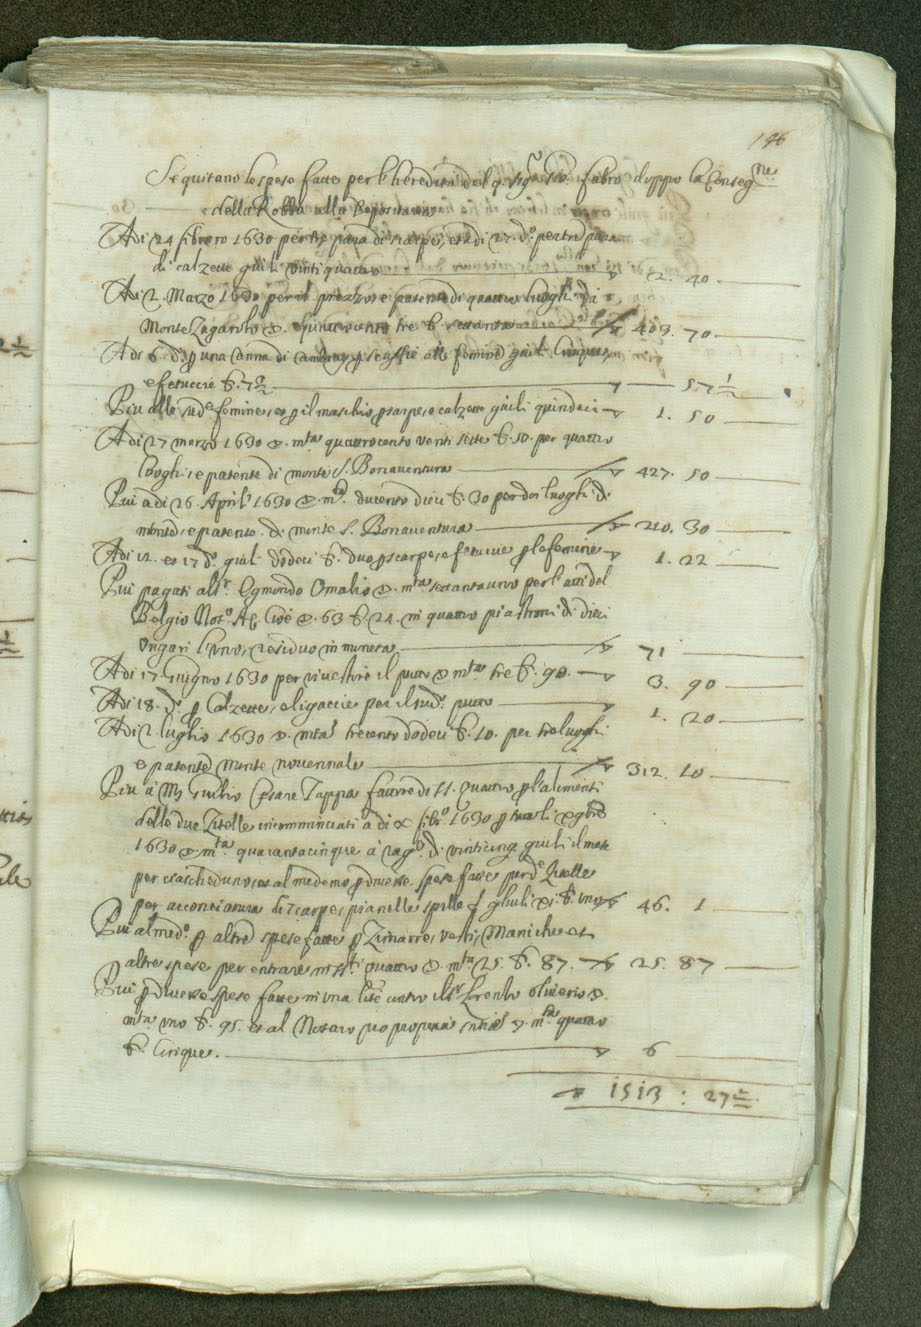 146
Seguitano le spese fatte per l'heredità del q. sig.r Fabro doppo la Conseg.ne
della Robba alla
Adi 24 febraro 1630 per tre para di scarpe, et adi 27 d.o per tre para
di calzette giuli vinti quattro 2. 40
Adi 2. Marzo 1630 per il prezzo e patente di quattro luoghi di
Monte Zagarolo tre b. settanta 403. 70
Adi 6 d.o p una canna di p scuffie alle femine giuli Cinque
e fetuccie b. 7½ 57½
Piu alle sud.e femine, et p il maschio p scarpe, e calzette giuli quindeci 1. 50
Adi 27 marzo 1630 m.ta quattrocento venti sette b. 50. per quattro
luoghi, e patente di monte S. Bonaventura 427. 50
Piu adi 26. Aprile 1630 m.ta ducento dieci b. 30 per doi luoghi di
monte, e patente di monte S. Bonaventura 210. 30
Adi 12. et 17 d.o giul. dodeci b. duo p scarpe, e fetuccie p le femine 1. 22
Piu pagati al s.r Egmondo Omalio m.ta settantauno per l'atti del
Belgio Not.o AC. cioè 63 b. 24. in quattro piastroni di dieci
Ongari l'uno, e residuo in moneta 71
Adi 17. Giugno 1630 per rivestire il putto m.ta tre b. 90. 3. 90
Adi 18. d.o p Calzette, e ligaccie per il sud.o putto 1. 20
Adi 2. luglio 1630 m.ta trecento dodeci b. 10. per tre luoghi
e patente monte novennale 312. 10
Piu a M. Giulio Cesare Zappa fattore di SS. Quattro p l'alimenti
delle due Zitelle incomminciati a di X febr.o 1630 p tutto li
1630 m.ta quarantacinque a rag.e di vinticinq. giuli il mese
per ciascheduno, et al medemo p diverse spese fatte per d.e Zitelle
per acconciatura di scarpe, pianelle, spille giuli b. uno 46. 1
Piu al med.o p altre spese fatte p Zimarre, vesti, Maniche et
altre spese per entrare in SS.ti quattro m.ta 25. b. 87. 25. 87
Piu p diverse spese fatte in una lite contro il s.r olivierio
m.ta uno b. 95. et al Notaro m.ta quattro
b. Cinque. 6
1513 : 27½